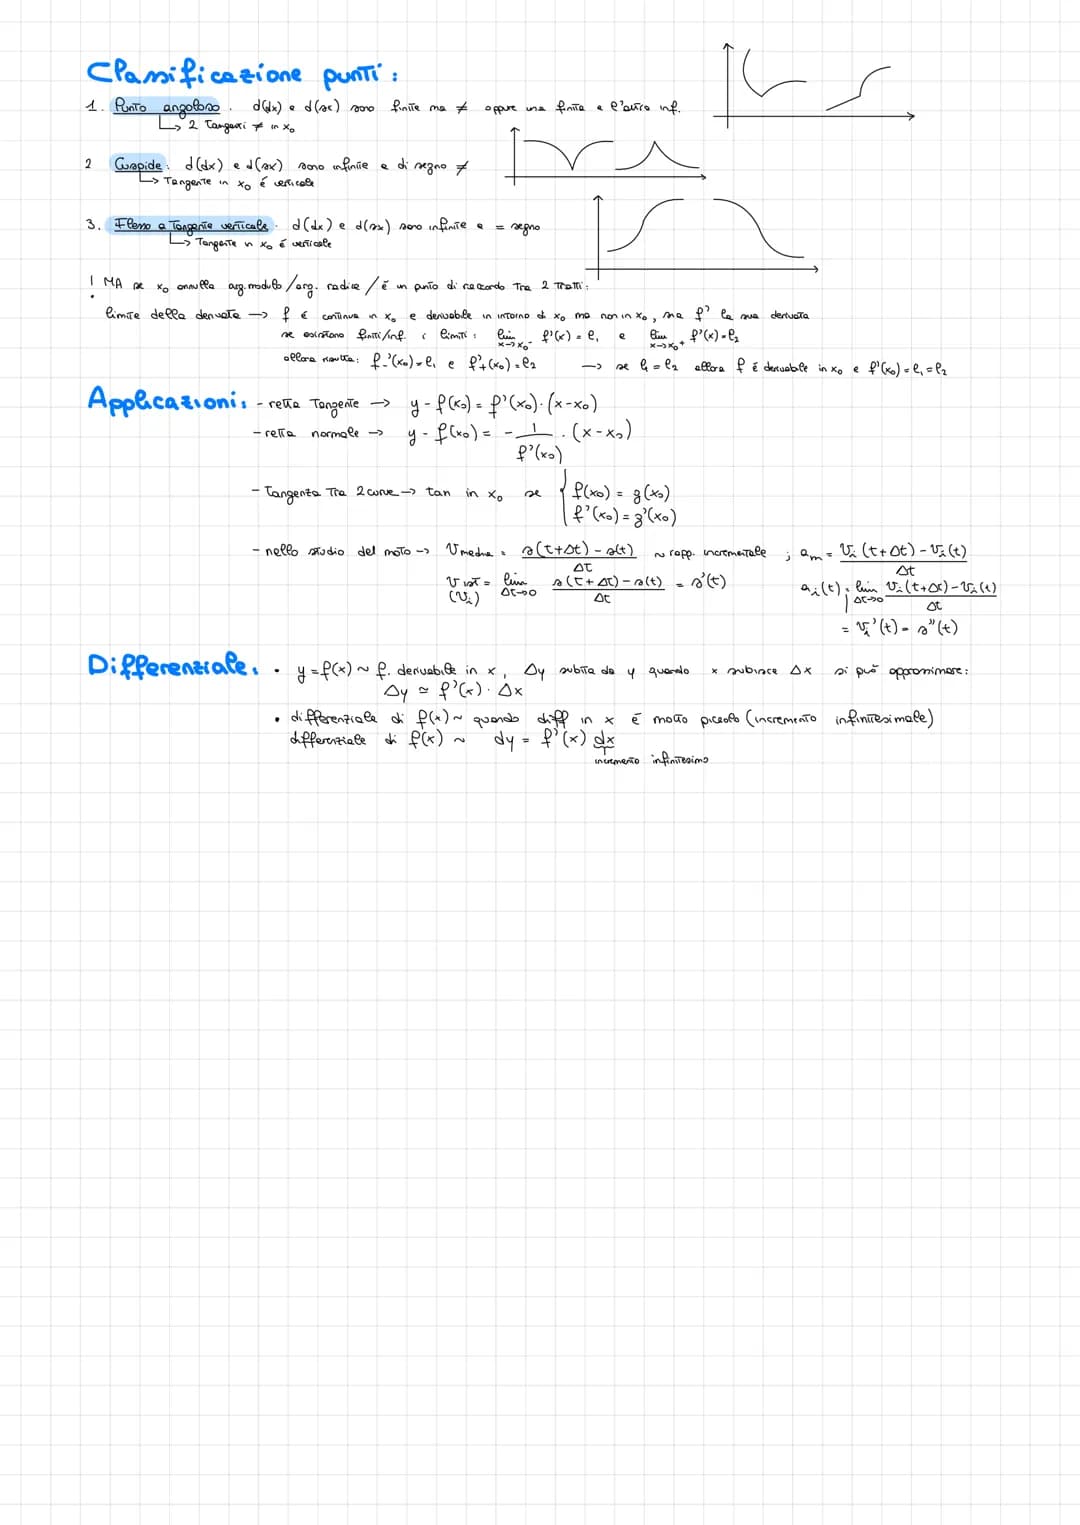 Classificazione punti:
1. Punto angoloso. d(dx) e d(sx) sono finite ma ≠ oppure una finita e l'altra inf.
↳ 2 Tangenti ≠ in x₀
2 Cuspide: d(dx) e d(sx) sono infinite e di segno ≠
↳ Tangente in x₀ é verticale
3. Flesso a Tangente verticale. d(dx) e d(sx) sono infinite e = segno
↳ Tangente in x₀ é verticale
! MA se x₀ annulla arg. modulo /arg. radice / é un punto di raccordo Tra 2 Tratti:
limite della derivata → f é continua in x₀ e derivabile in intorno di x₀ ma non in x₀, sia f' la sua derivata
se esistono finiti/inf. i limiti: lim x→x₀⁻ f'(x) = l₁ e lim x→x₀⁺ f'(x) = l₂
allora risulta: f₋'(x₀) = l₁ e f'₊(x₀) = l₂ → se l₁ = l₂ allora f é derivabile in x₀ e f'(x₀) = l₁ = l₂
Applicazioni: - retta Tangente → y - f(x₀) = f'(x₀)·(x-x₀)
- retta normale → y - f(x₀) = - 1/f'(x₀) · (x-x₀)
- Tangenza Tra 2 curve → tan in x₀ se { f(x₀) = g(x₀)
f'(x₀) = g'(x₀)
- nello studio del moto → Vmedia = s(t+Δt) - s(t)/Δt ~ rapp. incrementale ; aₘ = Vᵢ(t+Δt) - Vᵢ(t)/Δt
V ist = lim Δt→0 s(t+Δt) - s(t)/Δt = s'(t) aᵢ(t) = lim Δt→0 Vᵢ(t+Δt) - Vᵢ(t)/Δt
(Vᵢ)
= Vᵢ'(t) = s''(t)
Differenziale: • y = f(x) ~ f. derivabile in x, Δy subita da y quando x subisce Δx si puó approssimare:
Δy ≃ f'(x)·Δx
• differenziale di f(x) ~ quando diff in x é molto piccolo (incremento infinitesimale)
differenziale di f(x) ~ dy = f'(x) dx
incremento infinitesimo